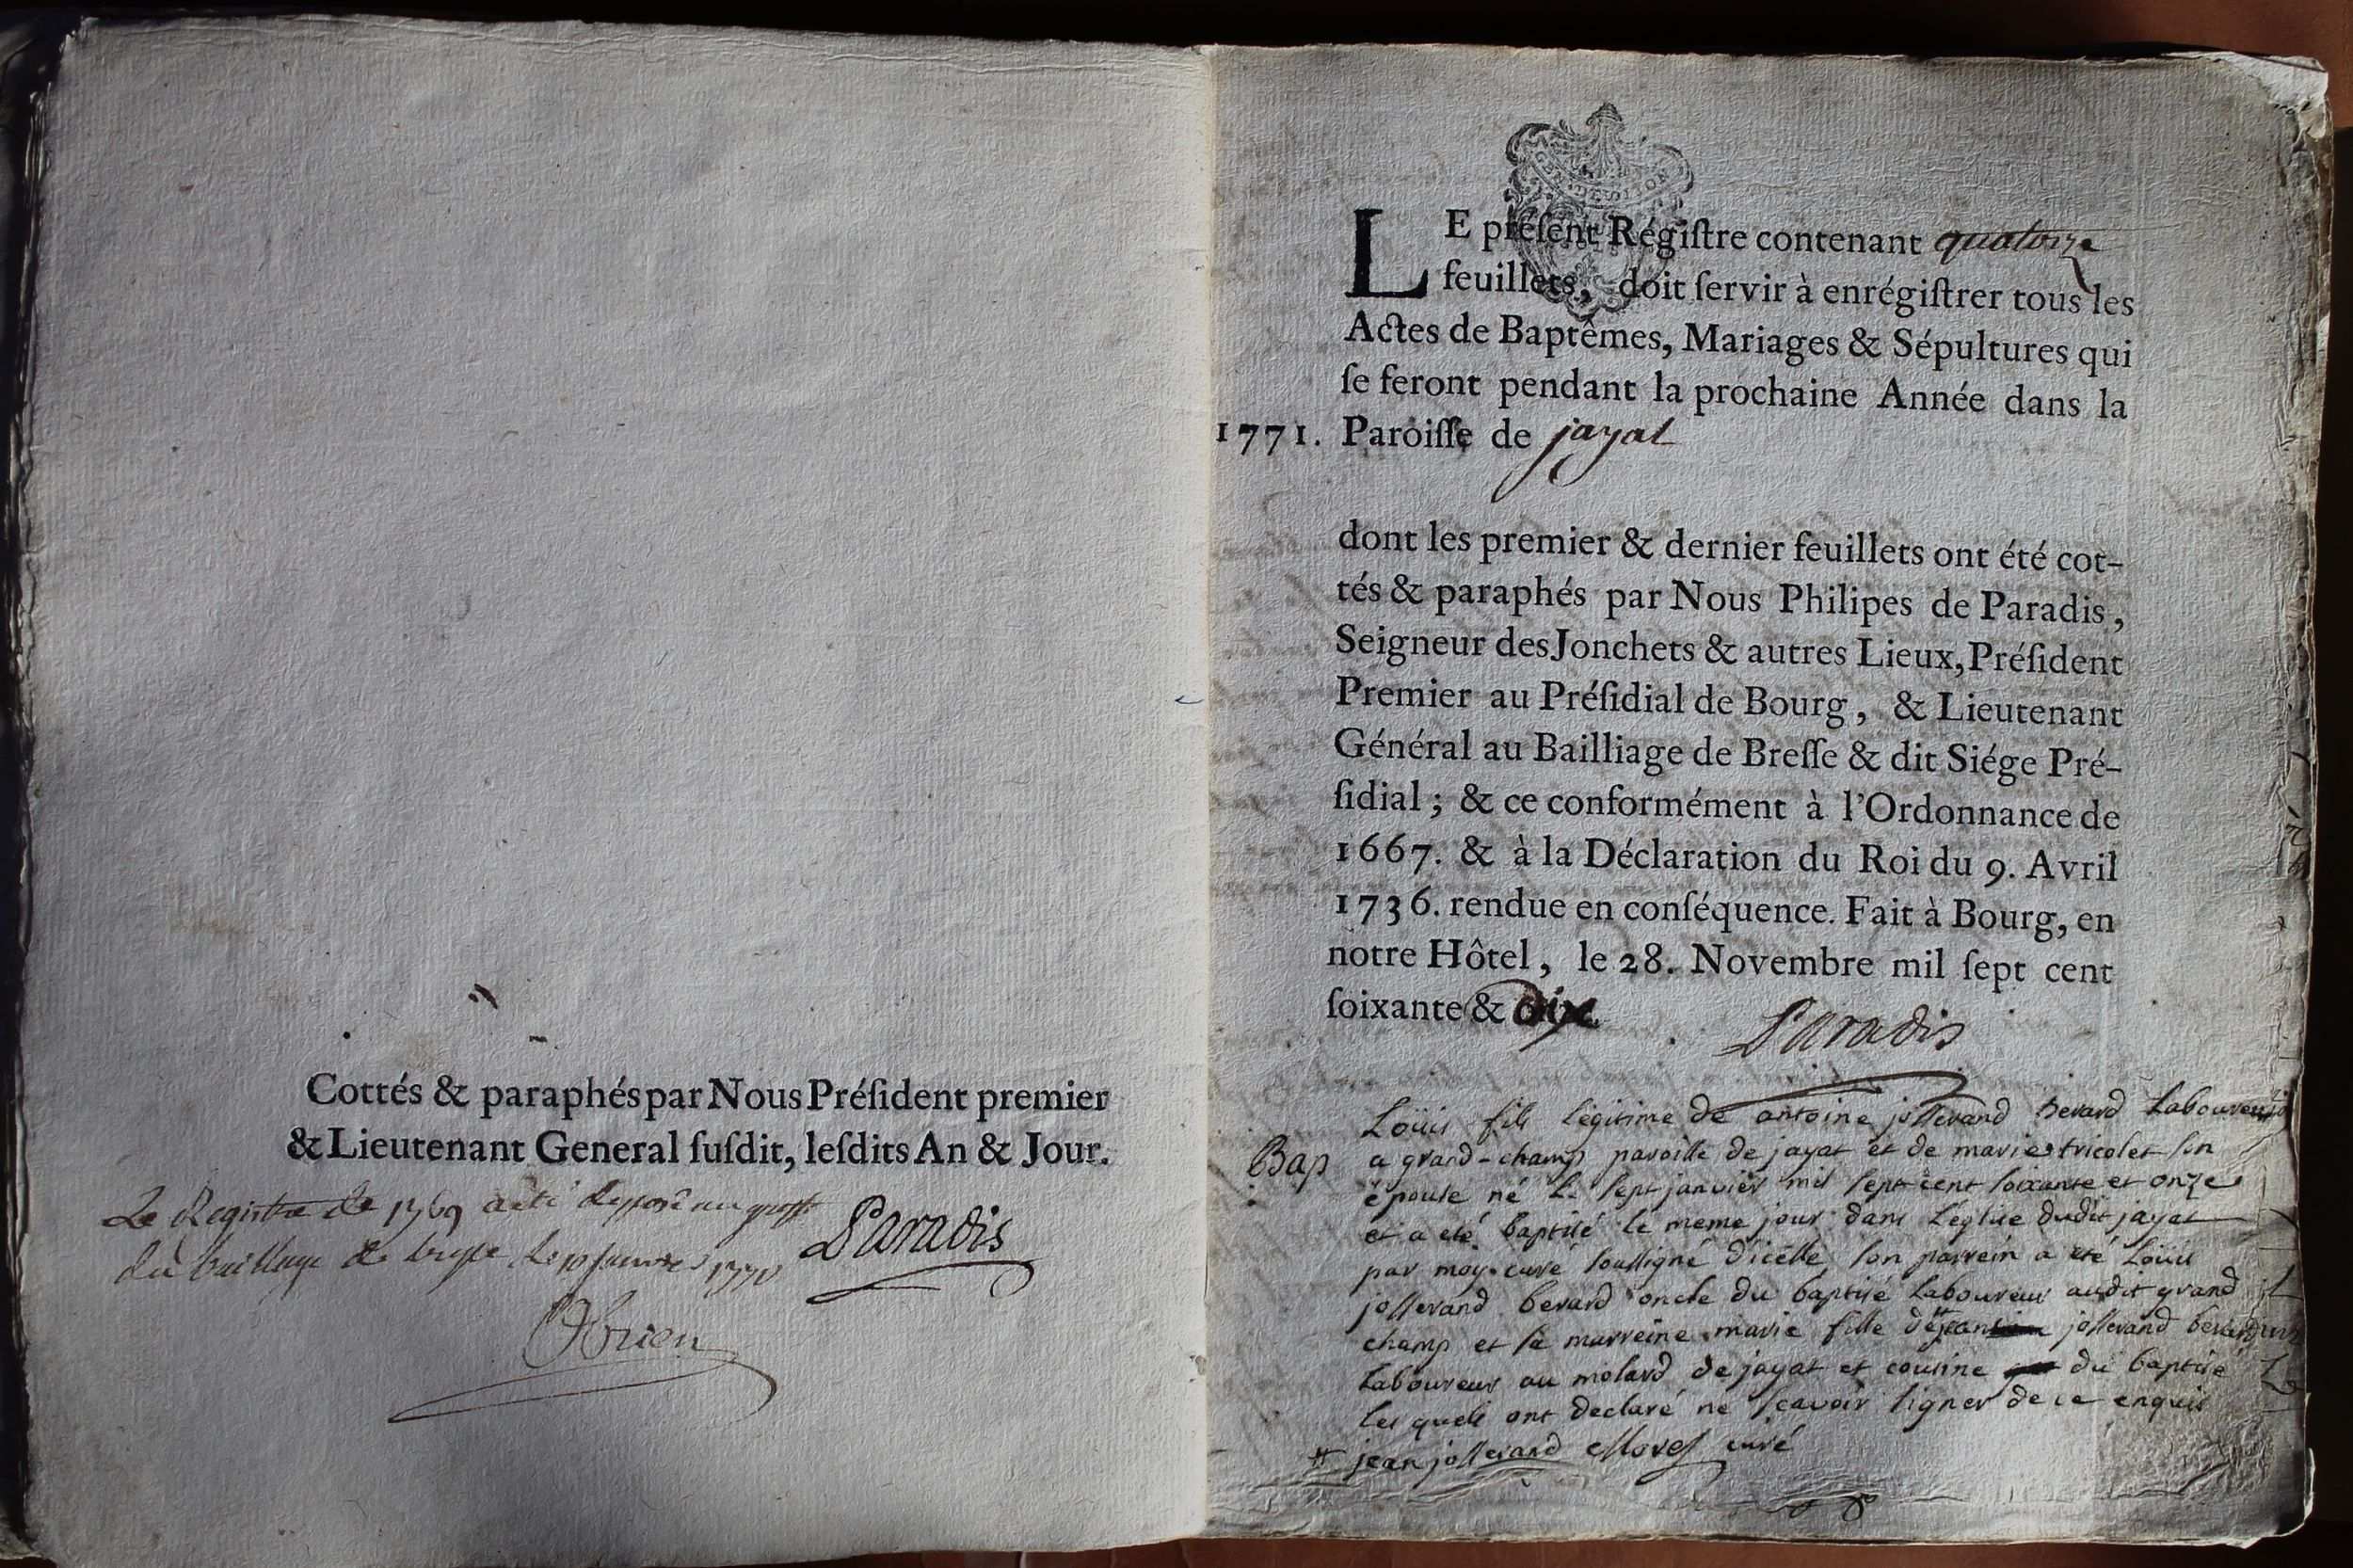 Cottés & paraphés par Nous Préſident premier
& Lieutenant General ſuſdit, leſdits An & Jour.
Le Registre de 1769 a été depposé au greffe
du bailliage de bresse le 10 janvier 1770
Paradis
GEN. DE DIJON
LE préſent Régiſtre contenant quatorze
feuillets, doit ſervir à enrégiſtrer tous les
Actes de Baptêmes, Mariages & Sépultures qui
ſe feront pendant la prochaine Année dans la
1771. Paroiſſe de jayat
dont les premier & dernier feuillets ont été cot-
tés & paraphés par Nous Philipes de Paradis,
Seigneur des Jonchets & autres Lieux, Préſident
Premier au Préſidial de Bourg, & Lieutenant
Général au Bailliage de Breſſe & dit Siége Pré-
ſidial; & ce conformément à l'Ordonnance de
1667. & à la Déclaration du Roi du 9. Avril
1736. rendue en conſéquence. Fait à Bourg, en
notre Hôtel, le 28. Novembre mil ſept cent
ſoixante & dix
Paradis
Loüis fils légitime de antoine josserand berard Laboureur
Bap a grand-champ paroisse de jayat et de marie tricolet son
épouse né le sept janvier mil sept cent soixante et onze
et a été baptisé le meme jour dans L'église dudit jayat
par moy curé soussigné d'icelle, son parrein a été Loüis
josserand berard oncle du baptisé Laboureur audit grand
champ et sa marreine marie fille de # josserand berard
Laboureur au molard de jayat et cousine du baptisé
les quels ont declaré ne scavoir signer de ce enquis
# jean josserand Morel curé